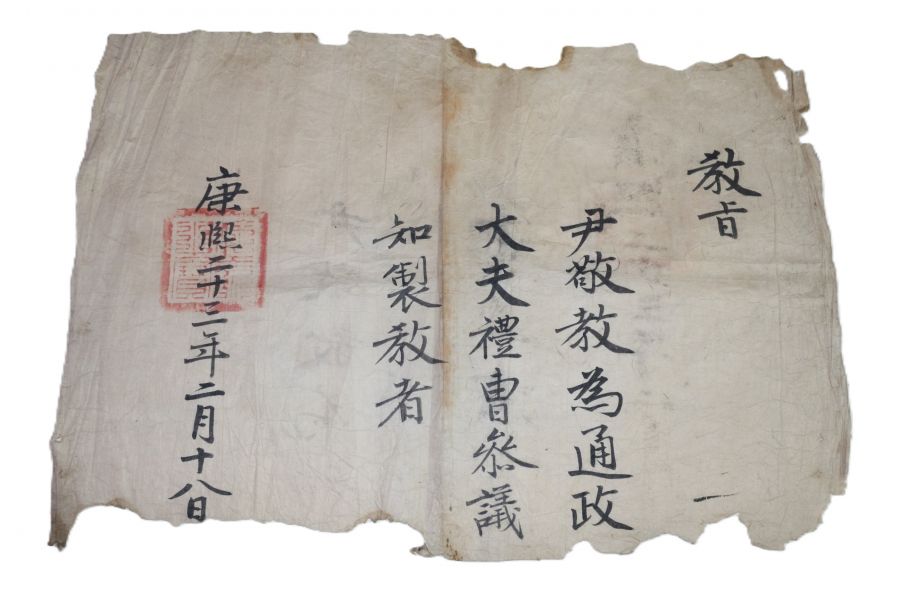 教旨
尹敬教為通政
大夫禮曹叅議
知製教者
康熙二十三年二月十八日